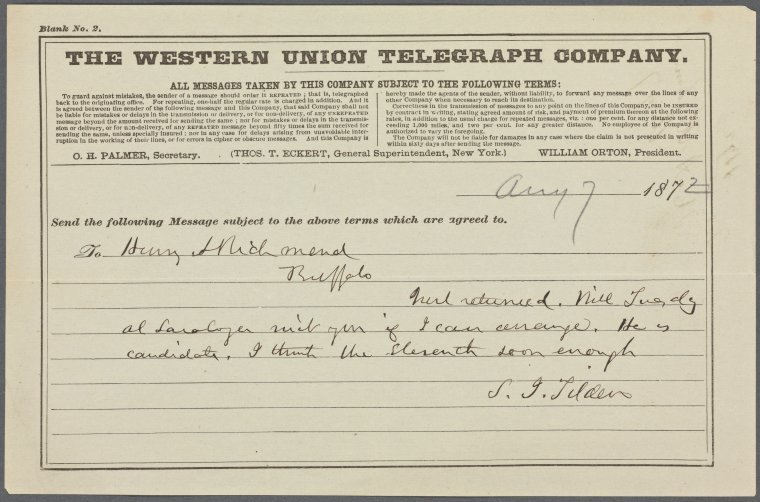 Blank No. 2.
THE WESTERN UNION TELEGRAPH COMPANY.
ALL MESSAGES TAKEN BY THIS COMPANY SUBJECT TO THE FOLLOWING TERMS:
To guard against mistakes, the sender of a message should order it REPEATED; that is, telegraphed
back to the originating office. For repeating, one-half the regular rate is charged in addition. And it
is agreed between the sender of the following message and this Company, that said Company shall not
be liable for mistakes or delays in the transmission or delivery, or for non-delivery, of any UNREPEATED
message beyond the amount received for sending the same; nor for mistakes or delays in the transmis-
sion or delivery, or for non-delivery, of any REPEATED message beyond fifty times the sum received for
sending the same, unless specially insured; nor in any case for delays arising from unavoidable inter-
ruption in the working of their lines, or for errors in cipher or obscure messages. And this Company is
hereby made the agents of the sender, without liability, to forward any message over the lines of any
other Company when necessary to reach its destination.
Correctness in the transmission of messages to any point on the lines of this Company, can be INSURED
by contract in writing, stating agreed amount of risk, and payment of premium thereon at the following
rates, in addition to the usual charge for repeated messages, viz.: one per cent. for any distance not ex-
ceeding 1,000 miles, and two per cent. for any greater distance. No employee of the Company is
authorized to vary the foregoing.
The Company will not be liable for damages in any case where the claim is not presented in writing
within sixty days after sending the message.
O. H. PALMER, Secretary. (THOS. T. ECKERT, General Superintendent, New York.) WILLIAM ORTON, President.
Aug 7 1872
Send the following Message subject to the above terms which are agreed to.
To Henry A Richmond
Buffalo
returned. Will Tuesday
at Saratoga you if I can arrange. He is
candidate. I think the Eleventh soon enough
S. J. Tilden